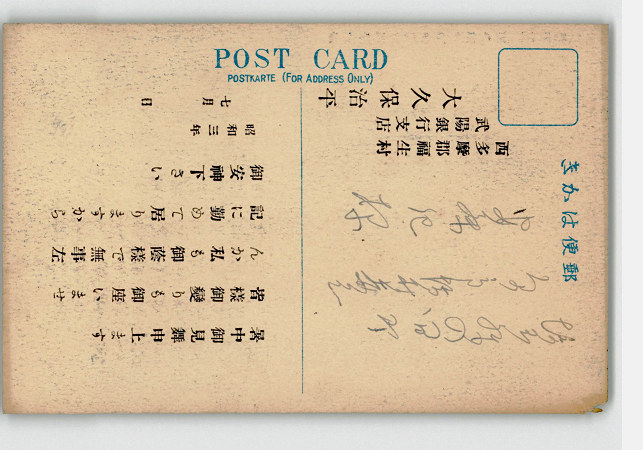 POST CARD
POSTKARTE (FOR ADDRESS ONLY)
郵便はかき
暑中御見舞申上ます
皆様御變りも御座いませ
んか私も御蔭様で無事左
記に勤めて居りますから
御安神下さい
昭和三年
七月 日
西多摩郡福生村
武陽銀行支店
大久保治平